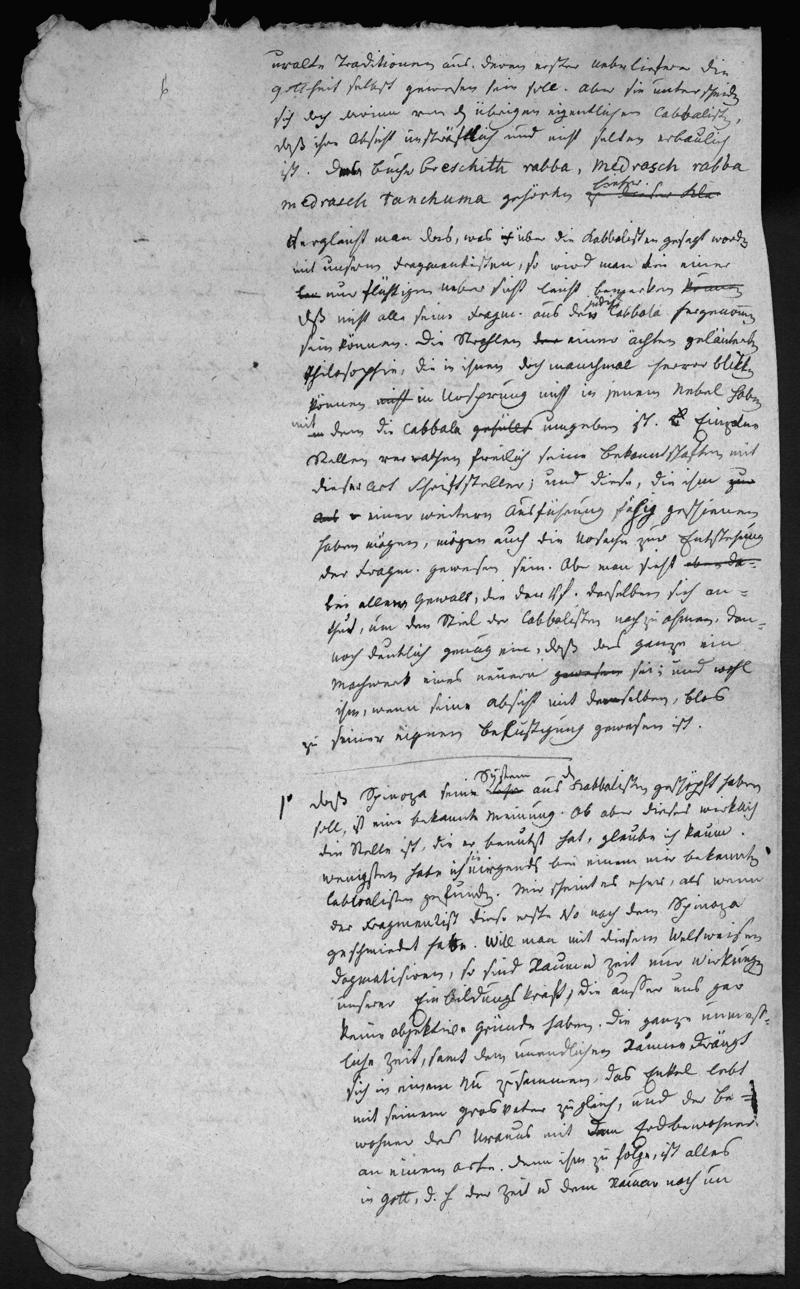 6
uralte Traditionen aus. deren erster Ueberlieferer die
gottheit selbst gewesen sein soll. Aber sie unterscheiden
sich doch darinn von den übrigen eigentlichen Cabbalisten,
daß ihre Absicht unsträflich und nicht selten erbaulich
ist. Das Buch Breschith rabba, Medrasch rabba
Medrasch Tanchuma gehörten hieher.
Vergleicht man das, was über die Kabbalisten gesagt worden
mit unsern Fragmentisten, so wird man bei einer
nur flüchtigen Uebersicht leicht bemerken können
daß nicht alle seine Fragm. aus der jüdischen Cabbala hergenommen
sein können. Die Strahlen einer ächten geläuterten
Philosophie, die in ihnen doch manchmal hervor blitzen
können ihren Ursprung nicht in jenem Nebel haben
mit dem die Cabbala umgeben ist. Einzelne
Stellen verrathen freilich seine Bekanntschaften mit
dieser Art Schriftsteller; und diese, die ihm
einer weitern Ausführung fähig geschienen
haben mögen, mögen auch die Ursache zur Entstehung
der Fragm. gewesen sein. Aber man sieht
bei allem Gewalt, die der Vf. derselben sich an-
thut, um den Stiel der Cabbalisten nachzuahmen, den-
noch deutlich genug ein, daß das ganze ein
Machwerk eines neuern sei; und wohl
ihm, wenn seine Absicht mit demselben, blos
zu seiner eignen Belustigung gewesen ist.
1. daß Spinoza sein System aus d. Kabbalisten geschöpft haben
soll, ist eine bekannte Meinung. Ob aber dieses wirklich
die Stelle ist, die er benutzt hat, glaube ich kaum.
wenigsten habe ich sie nirgends bei einem mir bekannten
Cabbalisten gefunden. Mir scheint es eher, als wenn
der Fragmentist diese erste No nach dem Spinoza
geschmiedet habe. Will man mit diesem Weltweisen
dogmatisiren, so sind Raum u Zeit nur Wirkungen
unserer Einbildungskraft, die ausser uns gar
keine objektive Gründe haben. Die ganze unermeß-
liche Zeit, samt dem unendlichen Raume drängt
sich in einem Nu zusammen, das Enkel lebt
mit seinem grosvater zugleich, und der Be-
wohner des Uranus mit dem Erdbewohner
an einem Orte. Denn ihm zu folge, ist alles
in Gott, d. h der Zeit u dem Raume nach un